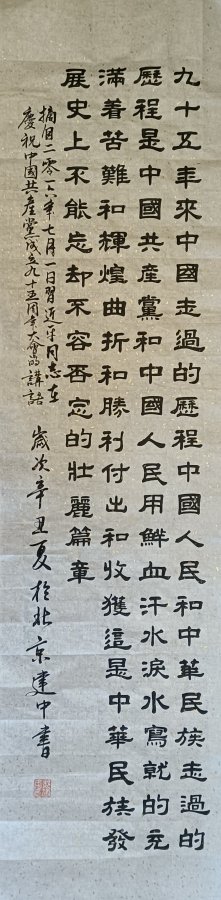 九十五年來中國走過的歷程中國人民和中華民族走過的
歷程是中國共產黨和中國人民用鮮血汗水淚水寫就的充
滿着苦難和輝煌曲折和勝利付出和收獲這是中華民族發
展史上不能忘却不容否定的壯麗篇章
摘自二零一六年七月一日習近平同志在
慶祝中國共產黨成立九十五周年大會的講話
歲次辛丑夏於北京建中書